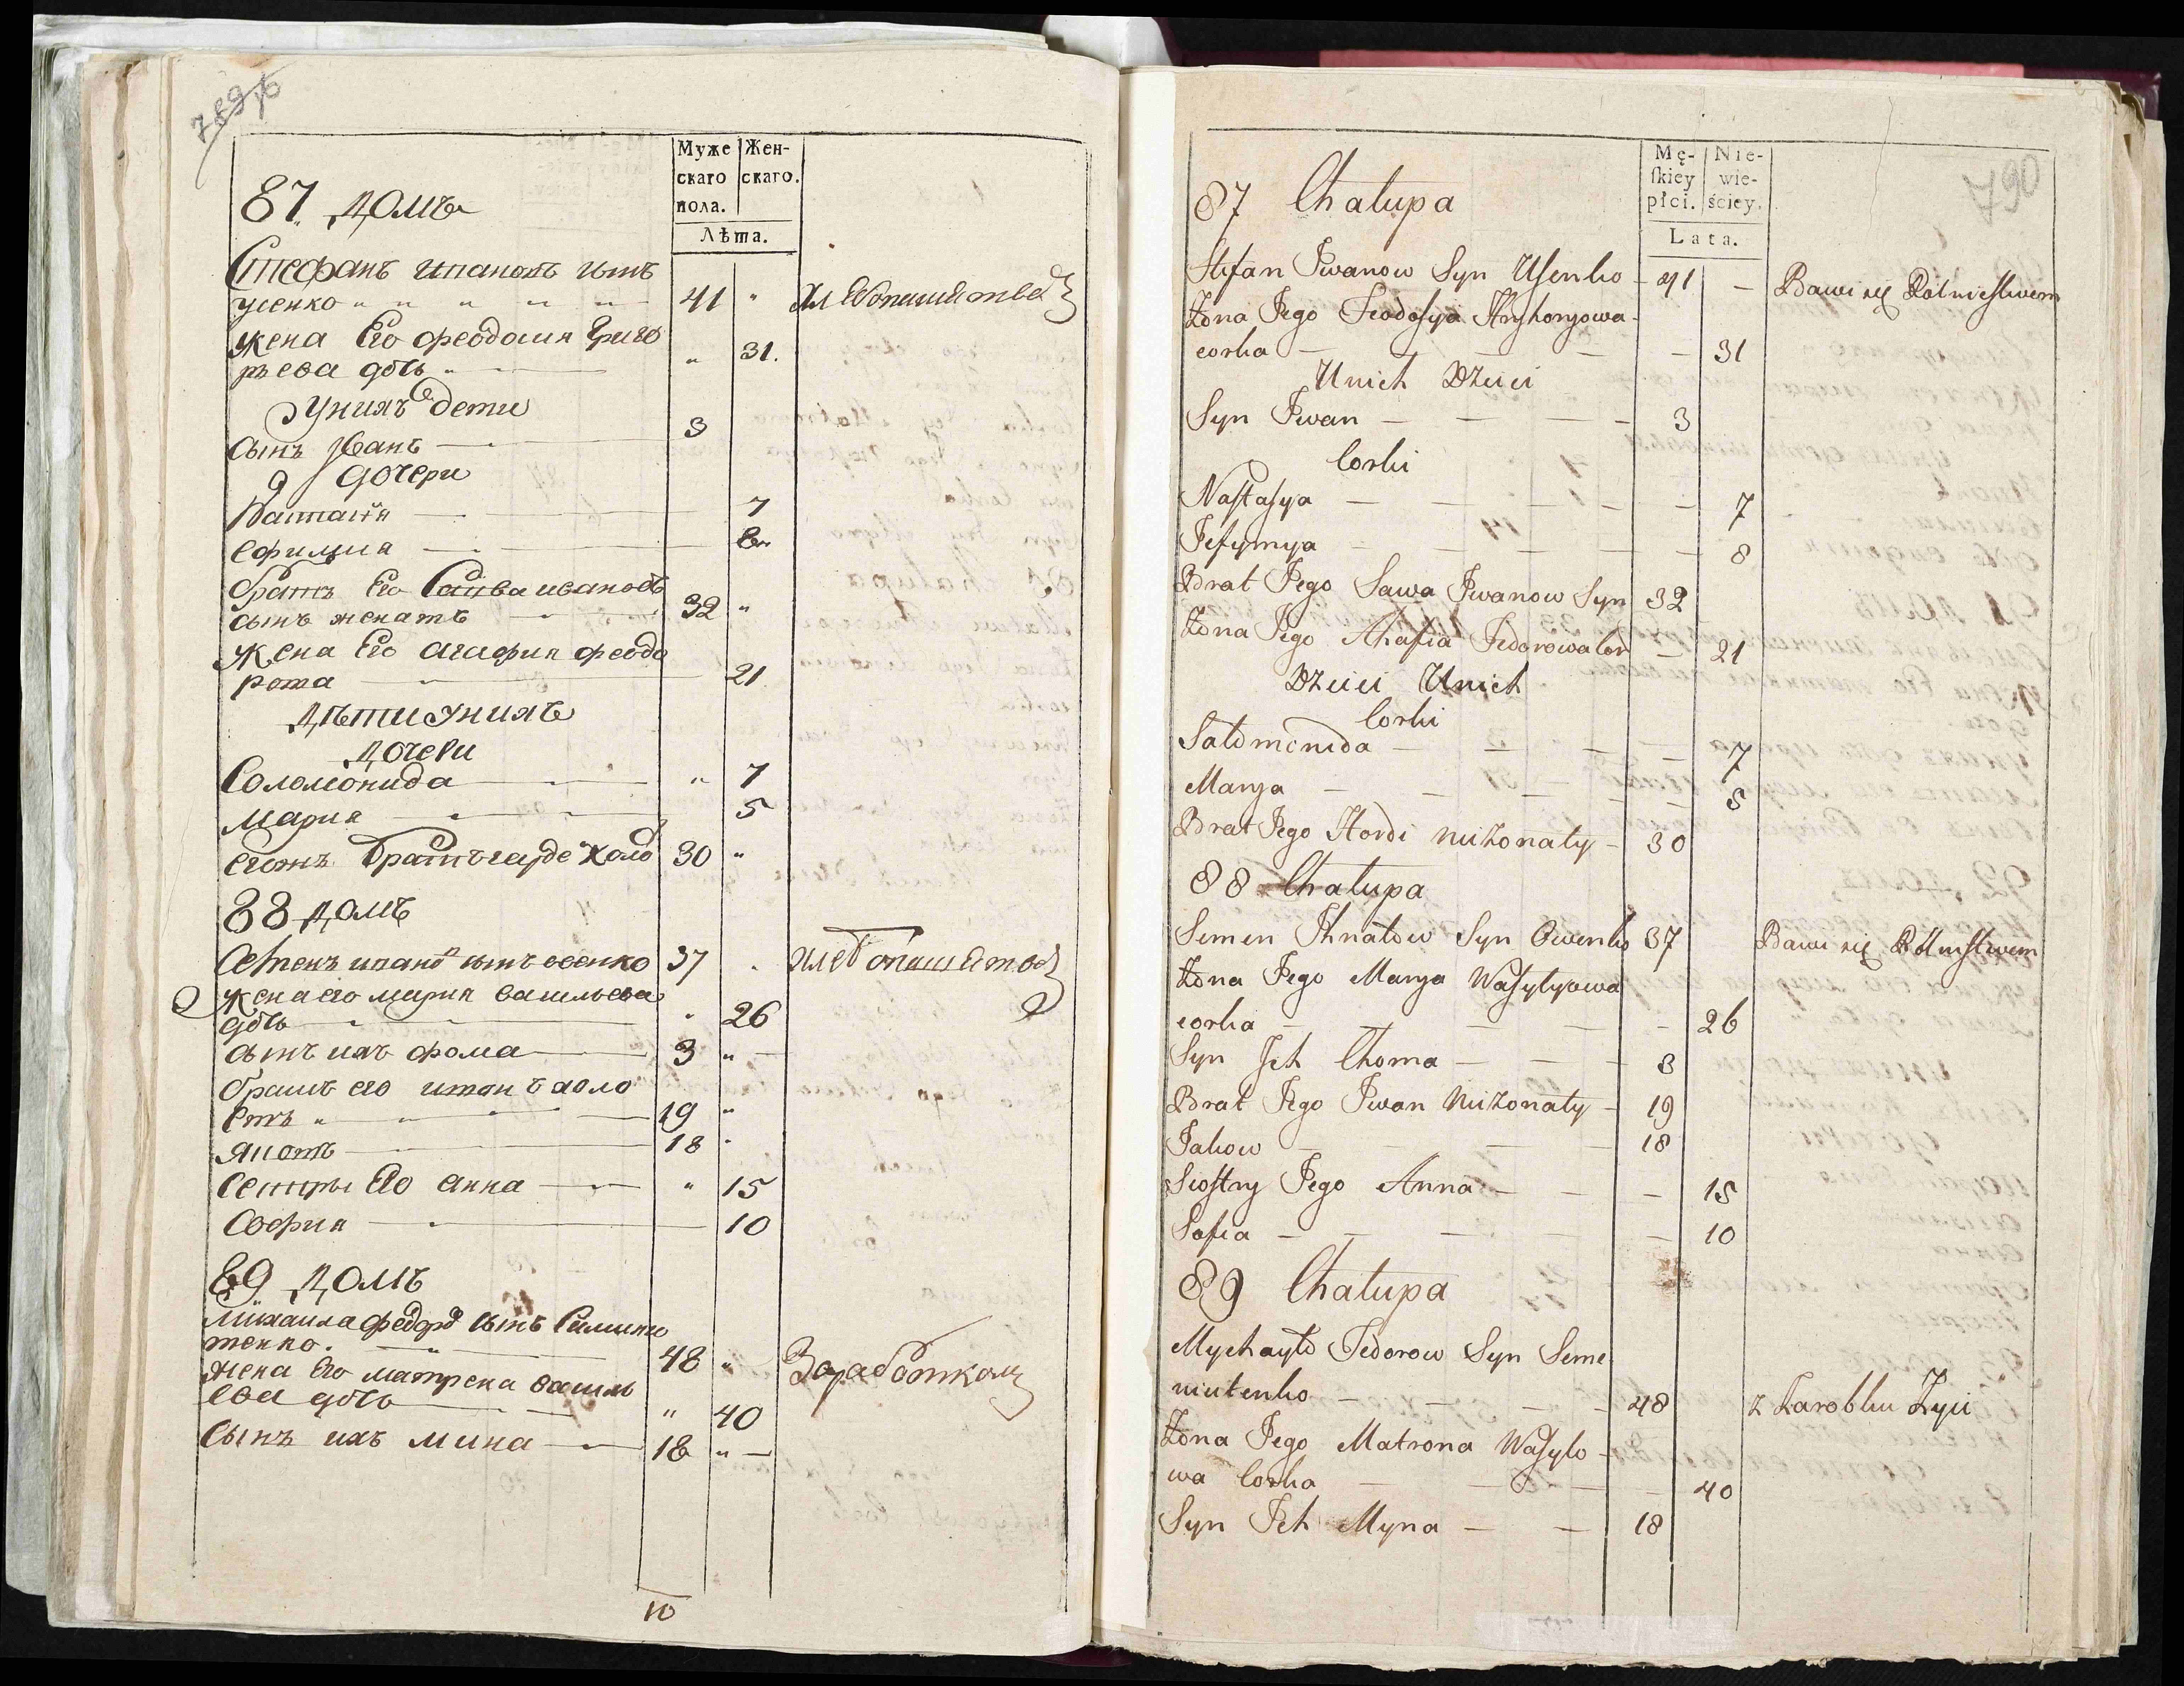 789 об
Муже
скаго
пола.
Жен-
скаго.
Лѣта.
87 домъ
Стефанъ ивановъ сынъ
усенко " " " " " 41 " Хлебопашествомъ
жена Его феодосия Григо
рьева дочь " " 31.
У нихъ дети
Сынъ Иванъ 3
дочери
Настасия 7
Ефимиа 8
братъ Его Савва ивановъ
сынъ женатъ 32 "
жена Его агафия феодо
рова 21
Дѣти У нихъ
дочери
Соломонида " 7
Мария 5
Егожъ братъ гарде холо 30 "
88 домъ
Семенъ сынъ овсенко 37 . хлебопашествомъ
жена его мария васильева
дочь " 26
сынъ ихъ фома 3 "
братъ его иванъ холо
стъ " 19 "
яковъ 18 "
Сестры Его анна " 15
София 10
89 домъ
Михаила федоровъ сынъ
тенко. 48 " Заработкомъ
жена Его матрена василь
ева дочь " 40
Сынъ ихъ мина 18 "
10
790
Mę-
ſkiey
płci.
Nie-
wie-
ściey.
Lata.
87 Chałupa
Stefan Iwanow Syn Uſenko - 41 - Bawi się Rolnictwem
Żona Jego Feodoſya Hryhoryowa
corka - 31
U nich Dzieci
Syn Iwan - 3
Corki
Naſtaſya - 7
Jefymya - 8
Brat Jego Sawa Iwanow Syn 32
Żona Jego Ahafia Fedorowa Cor - 21
Dzieci U nich
Corki
Sałomonida - 7
Marya - 5
Brat Jego Hordi nieżonaty - 30
88 Chałupa
Semen Ihnatow Syn Owenko 37 Bawi się Rolnictwem
Żona Jego Marya Waſylyowa
corka - 26
Syn Ich Choma - 3
Brat Jego Iwan Nieżonaty - 19
Jakow - 18
Sioſtry Jego Anna - 15
Sofia - 10
89 Chałupa
Mychayło Fedorow Syn Seme
niutenko - 48 z Zarobku Żyie
Żona Jego Matrona Waſylo -
wa Corka - 40
Syn Ich Myna - 18